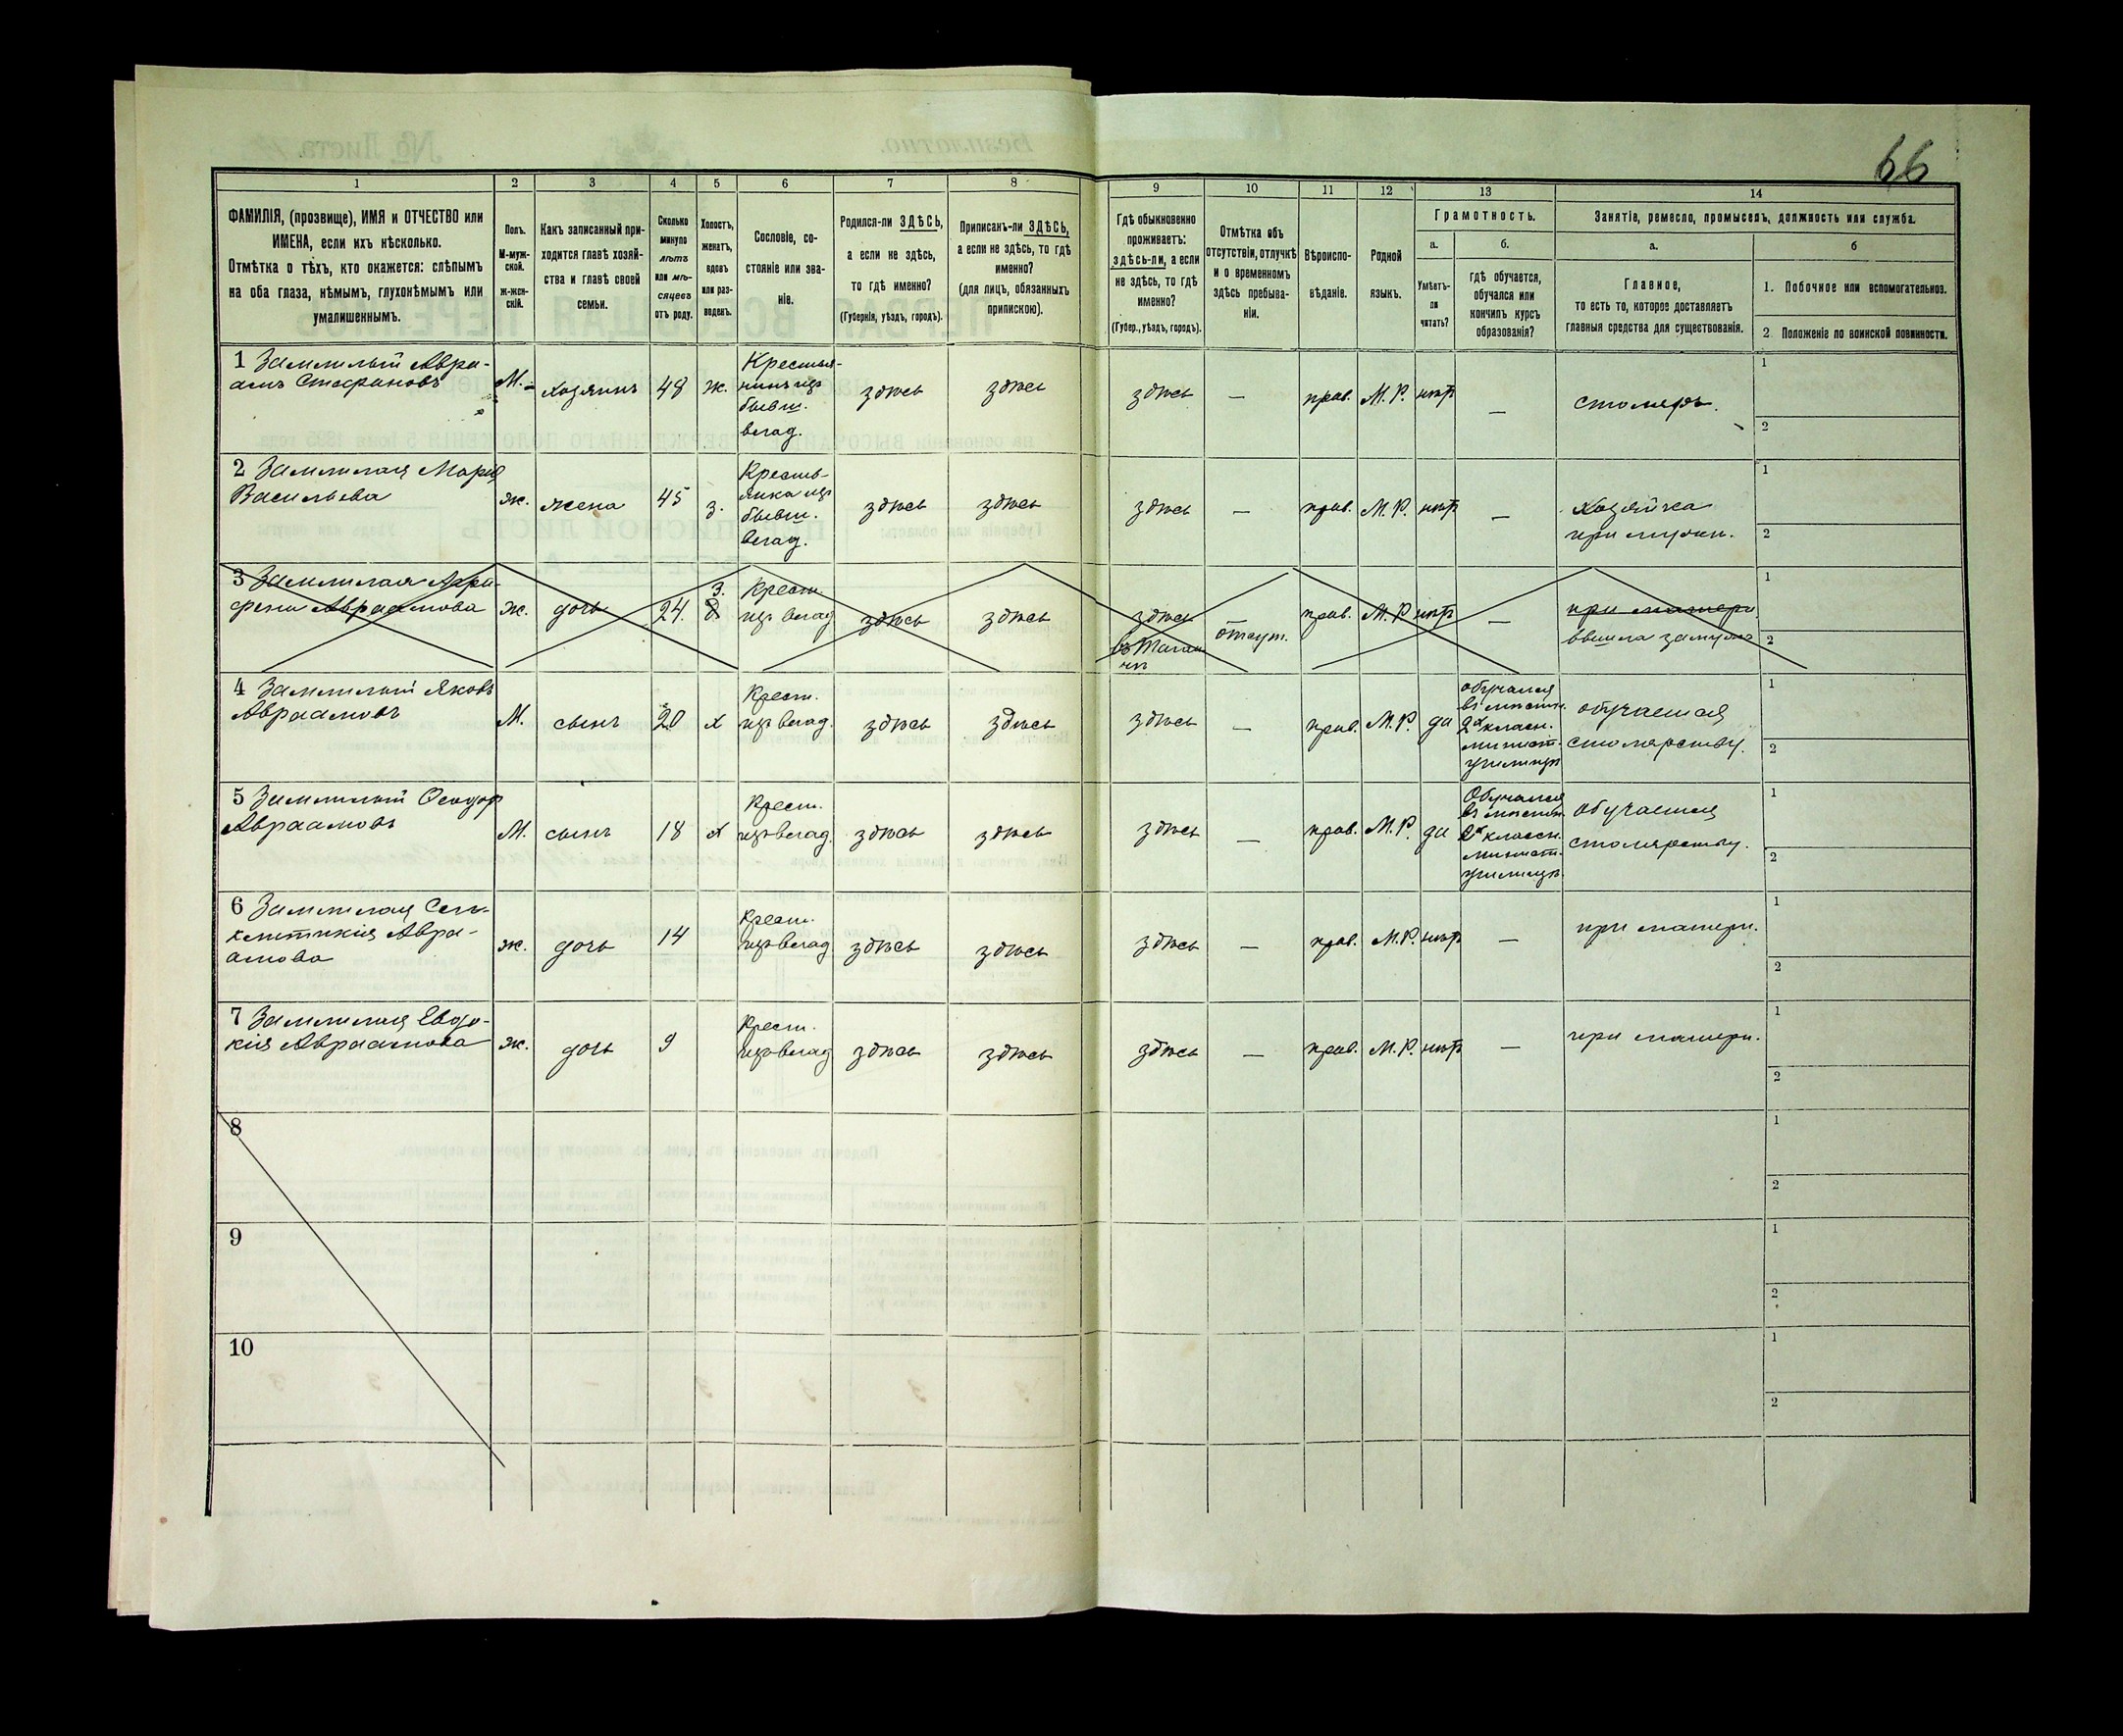 66
1 2 3 4 5 6 7 8 9 10 11 12 13 14
ФАМИЛІЯ, (прозвище), ИМЯ и ОТЧЕСТВО или
ИМЕНА, если ихъ нѣсколько.
Отмѣтка о тѣхъ, кто окажется: слѣпымъ
на оба глаза, нѣмымъ, глухонѣмымъ или
умалишеннымъ.
Полъ.
М-муж-
ской.
ж-жен-
скій.
Какъ записанный при-
ходится главѣ хозяй-
ства и главѣ своей
семьи.
Сколько
минуло
лѣтъ
или мѣ-
сяцевъ
отъ роду.
Холостъ,
женатъ,
вдовъ
или раз-
веденъ.
Сословіе, со-
стояніе или зва-
ніе.
Родился-ли ЗДѢСЬ,
а если не здѣсь,
то гдѣ именно?
(Губернія, уѣздъ, городъ).
Приписанъ-ли ЗДѢСЬ,
а если не здѣсь, то гдѣ
именно?
(для лицъ, обязанныхъ
припискою).
Гдѣ обыкновенно
проживаетъ:
здѣсь-ли, а если
не здѣсь, то гдѣ
именно?
(Губер., уѣздъ, городъ).
Отмѣтка объ
отсутствіи, отлучкѣ
и о временномъ
здѣсь пребыва-
ніи.
Вѣроиспо-
вѣданіе.
Родной
языкъ.
Грамотность.
а.
Умѣетъ-
ли
читать?
б.
гдѣ обучается,
обучался или
кончилъ курсъ
образованія?
Занятіе, ремесло, промыселъ, должность или служба.
а.
Главное,
то есть то, которое доставляетъ
главныя средства для существованія.
б
1. Побочное или вспомогательное.
2. Положеніе по воинской повинности.
1 Авра-
амъ Стефановъ
М. хозяинъ 48 ж.
Крестья-
нинъ изъ
бывш.
влад.
здѣсь здѣсь здѣсь — прав. М. Р. нѣтъ — столяръ.
1
2
2 Марія
Васильева
ж. жена 45 з.
Кресть-
янка изъ
бывш.
влад.
здѣсь здѣсь здѣсь — прав. М. Р. нѣтъ —
Хозяйка
при мужѣ.
1
2
3 Агри-
фена Авраамова
ж. дочь 24. з.
Крест.
изъ влад
здѣсь здѣсь здѣсь
отсут. прав. М. Р. нѣтъ —
при матери
вышла замужъ
1
2
4 Яковъ
Авраамовъ
М. сынъ 20 х
Крест.
изъ влад.
здѣсь здѣсь здѣсь — прав. М. Р. да
обучался
въ мѣстн.
2х класн.
минист.
училищѣ
обучается
столярству.
1
2
5 Ѳеодор
Авраамовъ
М. сынъ 18 х
Крест.
изъ влад.
здѣсь здѣсь здѣсь — прав. М. Р. да
Обучался
въ мѣстн.
2х классн.
минист.
училищѣ.
обучается
столярству.
1
2
6 Син-
клитикія Авра-
амова
ж. дочь 14
Крест.
изъ влад
здѣсь здѣсь здѣсь — прав. М. Р. нѣтъ — при матери.
1
2
7 Евдо-
кія Авраамова
ж. дочь 9
Крест.
изъ влад
здѣсь здѣсь здѣсь — прав. М. Р. нѣтъ — при матери.
1
2
8
1
2
9
1
2
10
1
2